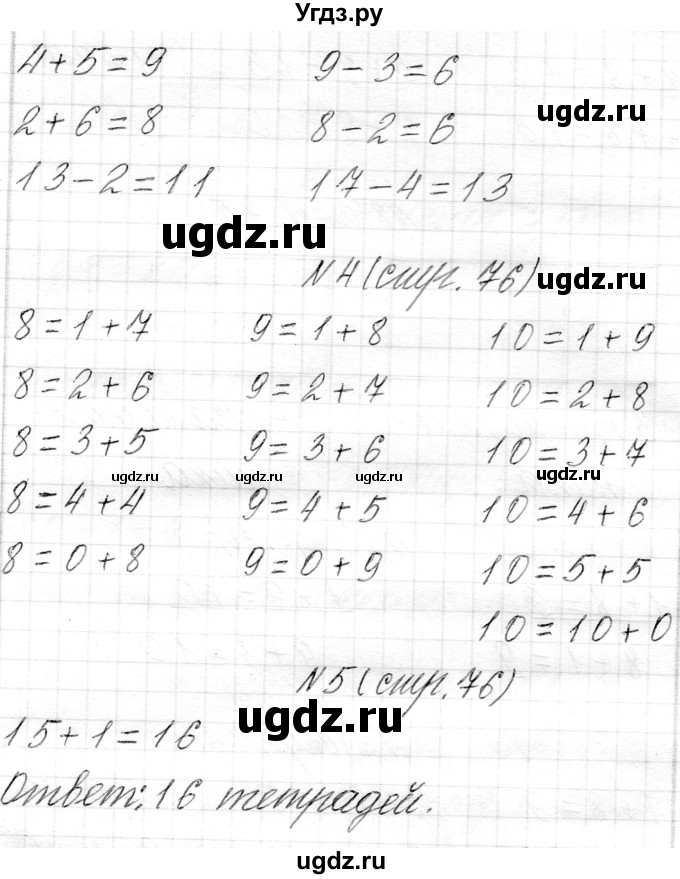 Угдз.ру
4+5=9 9-3=6
2+6=8 8-2=6 ugdz.ru
13-2=11 17-4=13
ugdz.ru
N4(стр. 76) ugdz.ru
8=1+7 9=1+8 10=1+9
8=2+6 9=2+7 10=2+8
8=3+5 9=3+6 10=3+7
ugdz.ru ugdz.ru ugdz.ru
8=4+4 9=4+5 10=4+6
8=0+8 9=0+9 10=5+5
10=10+0
N5(стр. 76)
ugdz.ru
15+1=16
Ответ: 16 тетрадей.
ugdz.ru